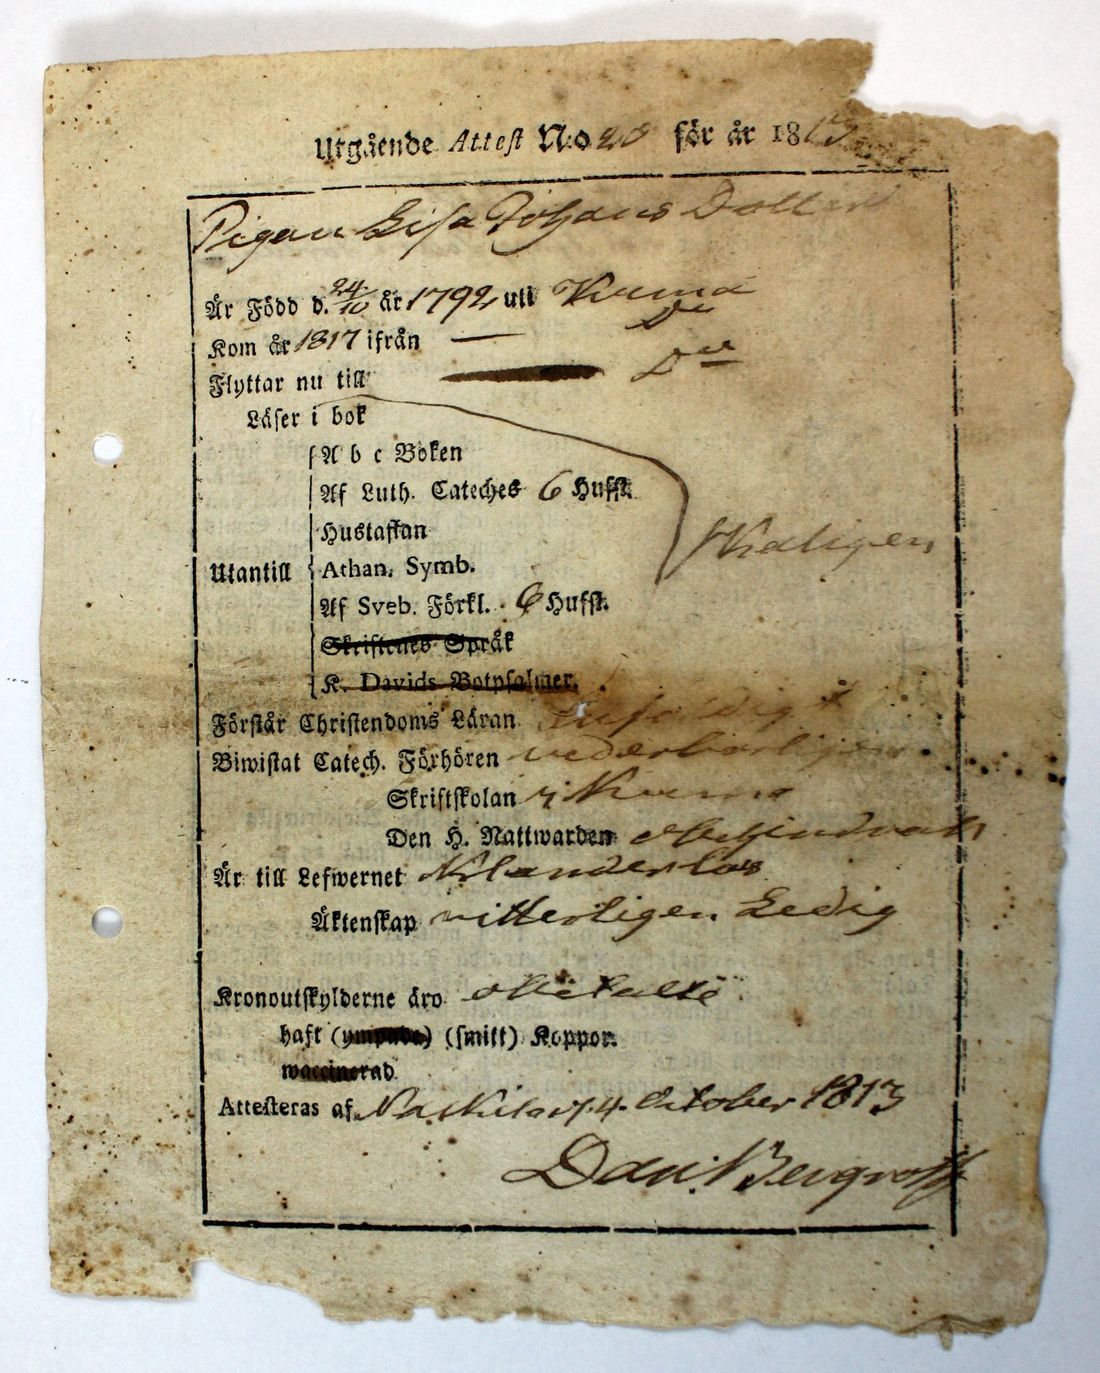 Utgående Attest N:o 28 för år 1813
Pigan Lisa Johans Dotter
Är Född d. 24/10 år 1792 uti Kumo
Kom år 1817 ifrån — Do
Flyttar nu till Do
Läser i bok
A b c Boken
Af Luth. Cateches 6 Hufst.
Hustaflan
skäligen
Utantill Athan. Symb.
Af Sveb. Förkl. 6 Hufst.
Skriftenes Språk
K. Davids Botpsalmer.
Förstår Christendoms Läran
Biwistat Catech. Förhören wederbörligen
Skriftskolan i Kumo
Den H. Nattwarden obehindrad
Är till Lefwernet Klanderlös
Äktenskap witterligen Ledig
Kronoutskylderne äro obetalte
haft (ympade) (smitt) Koppor.
waccinerad
Attesteras af 4. October 1813
Dan. Bergroth